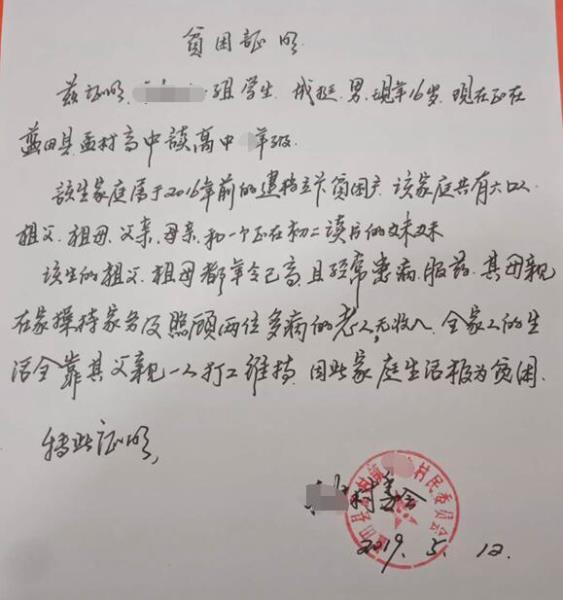 贫困证明
兹证明 组学生 成挺.男.现年16岁.现在正在
蓝田县孟村高中读高中 年级.
该生家庭属于2016年前的建档立卡贫困户.该家庭共有六口人
祖父.祖母.父亲.母亲.和一个正在初二读书的妹妹
该生的祖父.祖母都年令已高.且经常患病.服药.其母亲
在家操持家务及照顾两位多病的老人,无收入.全家人的生
活全靠其父亲一人打工维持.因此家庭生活极为贫困.
特此证明,
村委会
村民委员会
2019.5.12.